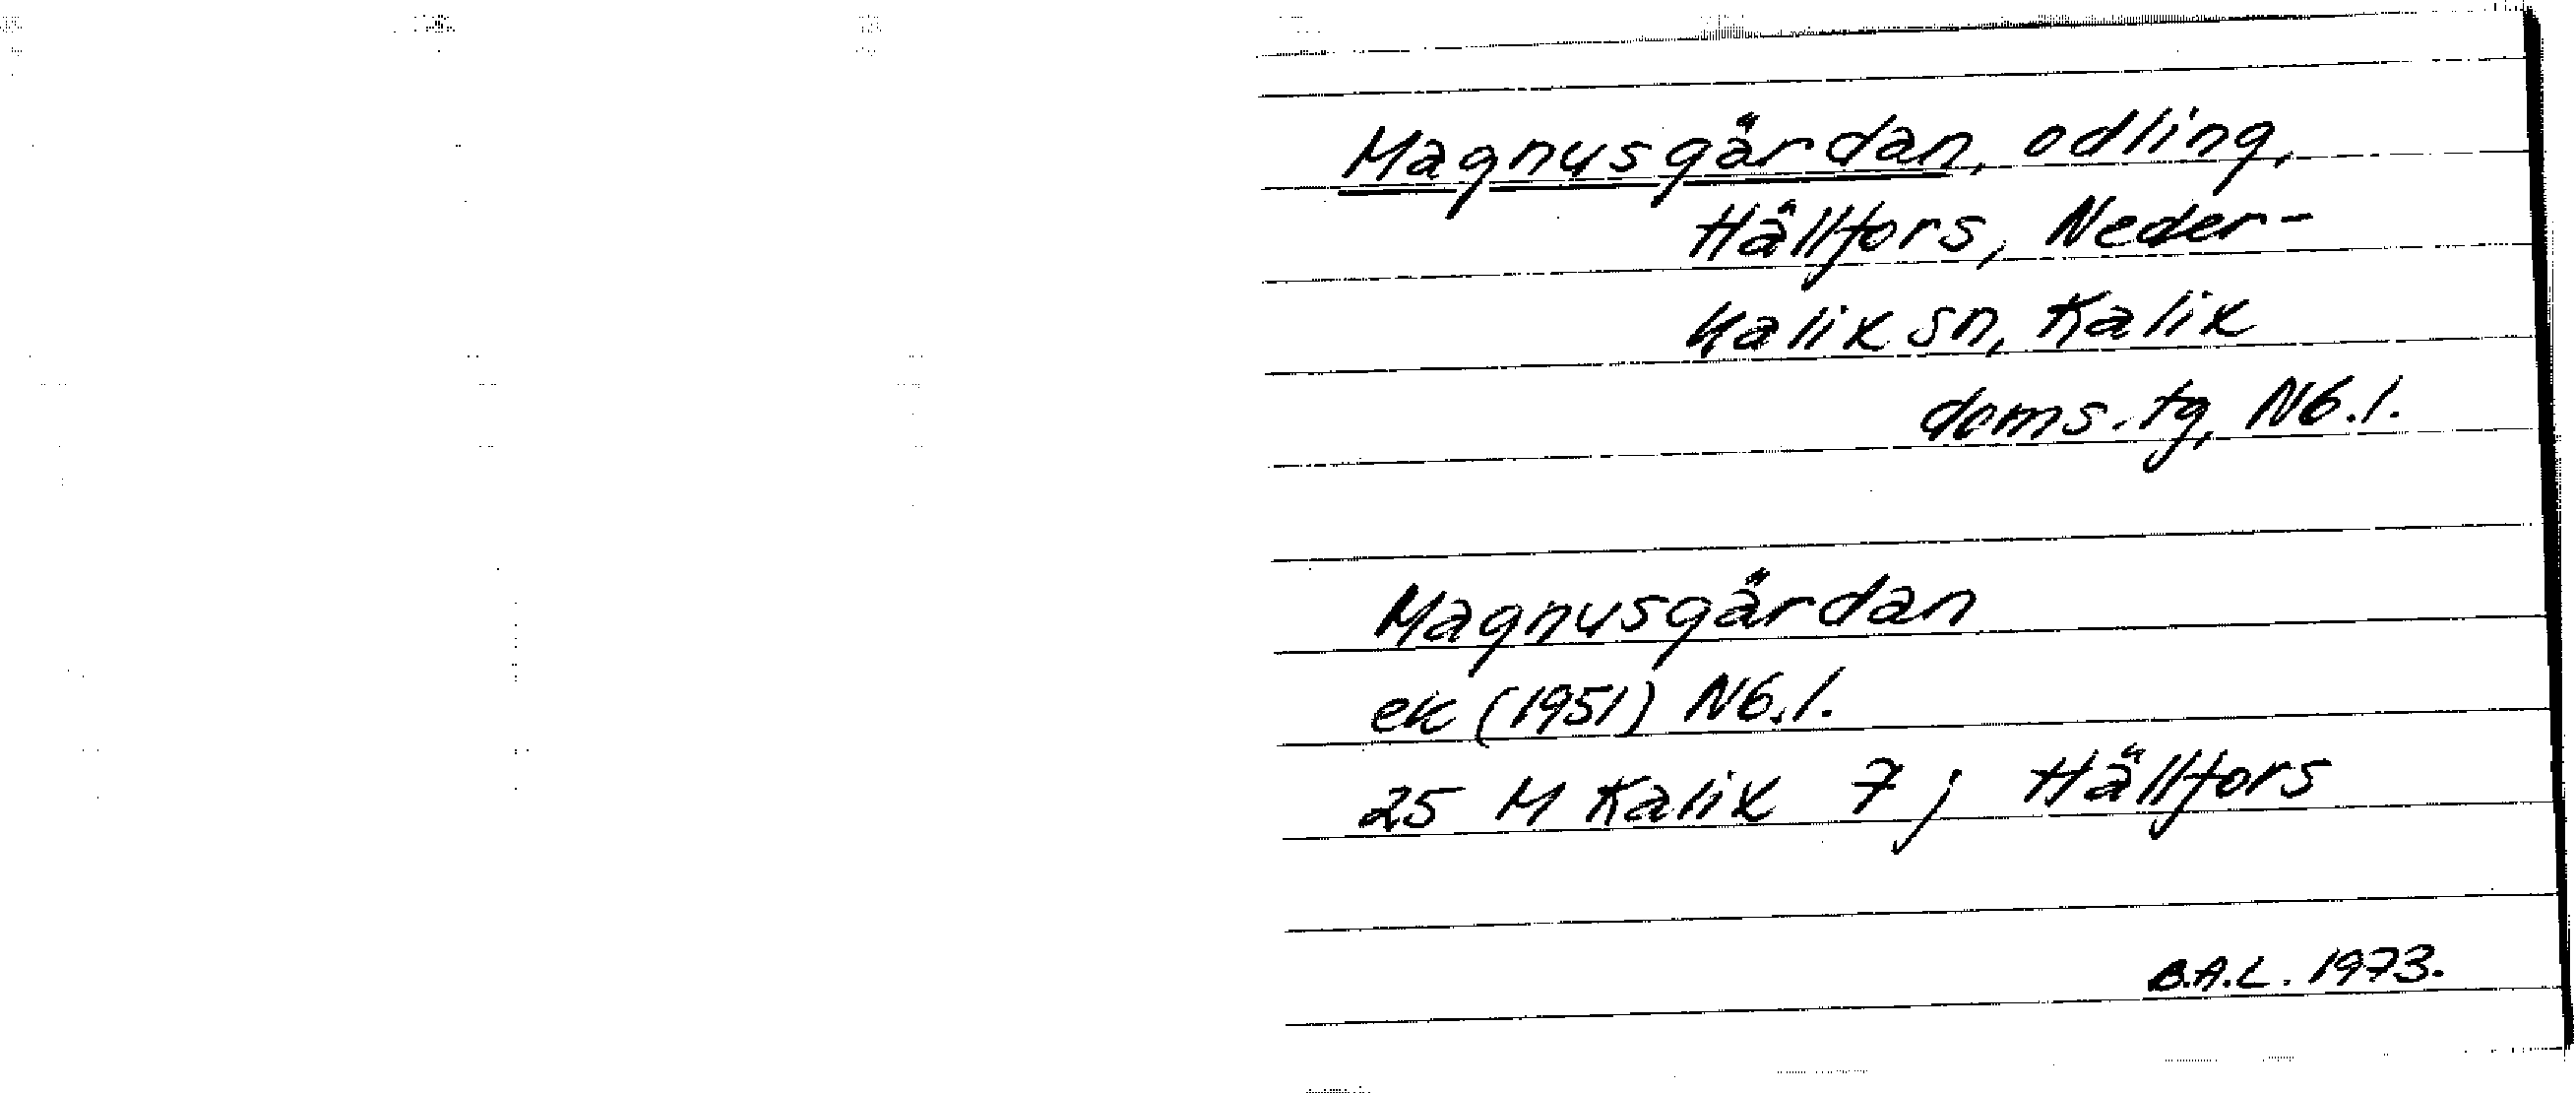 Magnusgärdan, odling,
Hällfors, Neder-
kalix sn, Kalix
doms. tg, Nb. l.
Magnusgärdan
ek (1951) Nb. l.
25 M Kalix 7 j Hällfors
B.A.L. 1973.